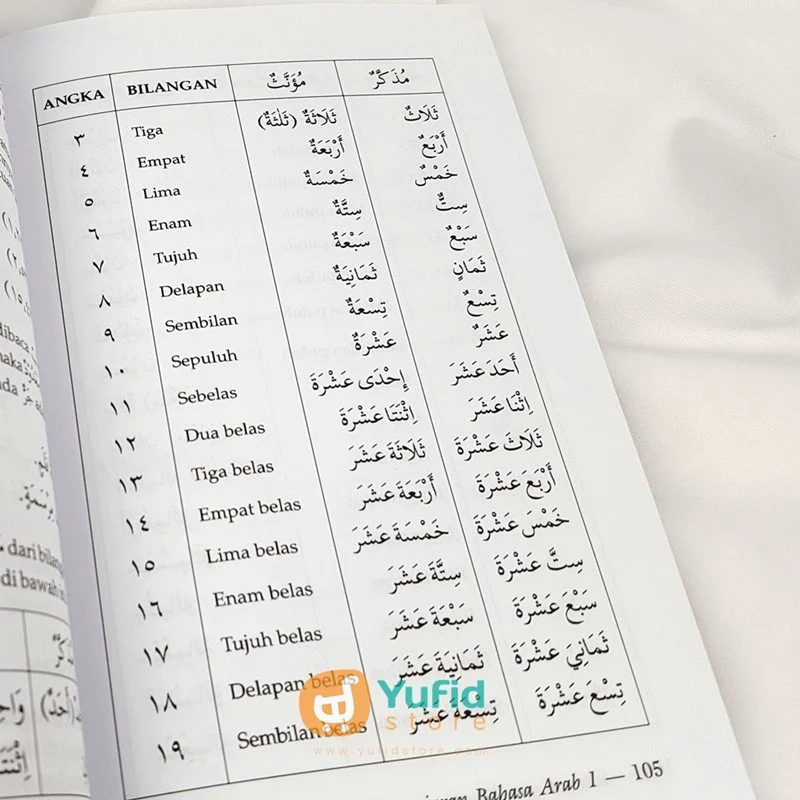 ANGKA BILANGAN مُؤَنَّثٌ مُذَكَّرٌ
٣ Tiga ثَلَاثَةٌ (ثَلٰثَةٌ) ثَلَاثٌ
٤ Empat أَرْبَعَةٌ أَرْبَعٌ
٥ Lima خَمْسَةٌ خَمْسٌ
٦ Enam سِتَّةٌ سِتٌّ
٧ Tujuh سَبْعَةٌ سَبْعٌ
٨ Delapan ثَمَانِيَةٌ ثَمَانٍ
٩ Sembilan تِسْعَةٌ تِسْعٌ
١٠ Sepuluh عَشْرَةٌ عَشَرٌ
١١ Sebelas إِحْدَى عَشْرَةَ أَحَدَ عَشَرَ
١٢ Dua belas اِثْنَتَا عَشْرَةَ اِثْنَا عَشَرَ
١٣ Tiga belas ثَلَاثَةَ عَشَرَ ثَلَاثَ عَشْرَةَ
١٤ Empat belas أَرْبَعَةَ عَشَرَ أَرْبَعَ عَشْرَةَ
١٥ Lima belas خَمْسَةَ عَشَرَ خَمْسَ عَشْرَةَ
١٦ Enam belas سِتَّةَ عَشَرَ سِتَّ عَشْرَةَ
١٧ Tujuh belas سَبْعَةَ عَشَرَ سَبْعَ عَشْرَةَ
١٨ Delapan belas ثَمَانِيَةَ عَشَرَ ثَمَانِيَ عَشْرَةَ
١٩ Sembilan belas تِسْعَةَ عَشَرَ تِسْعَ عَشْرَةَ
Yufid
store
www.yufidstore.com
Bahasa Arab 1 — 105
dari
di bawah